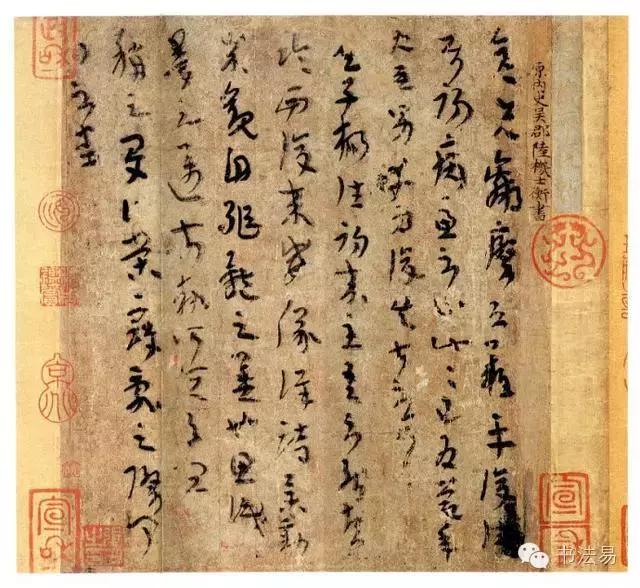 原內史吳郡陸機士衡書
彥先羸瘵恐難平復往屬
初病慮不止此此已為慶承
使唯男幸為復失前憂耳
吳子楊往初來主吾不能盡
臨西復來威儀詳跱舉動
成觀自軀體之美也思識
量之邁前執所恒有宜
稱之夏伯榮寇亂之際聞
問不悉
书法易